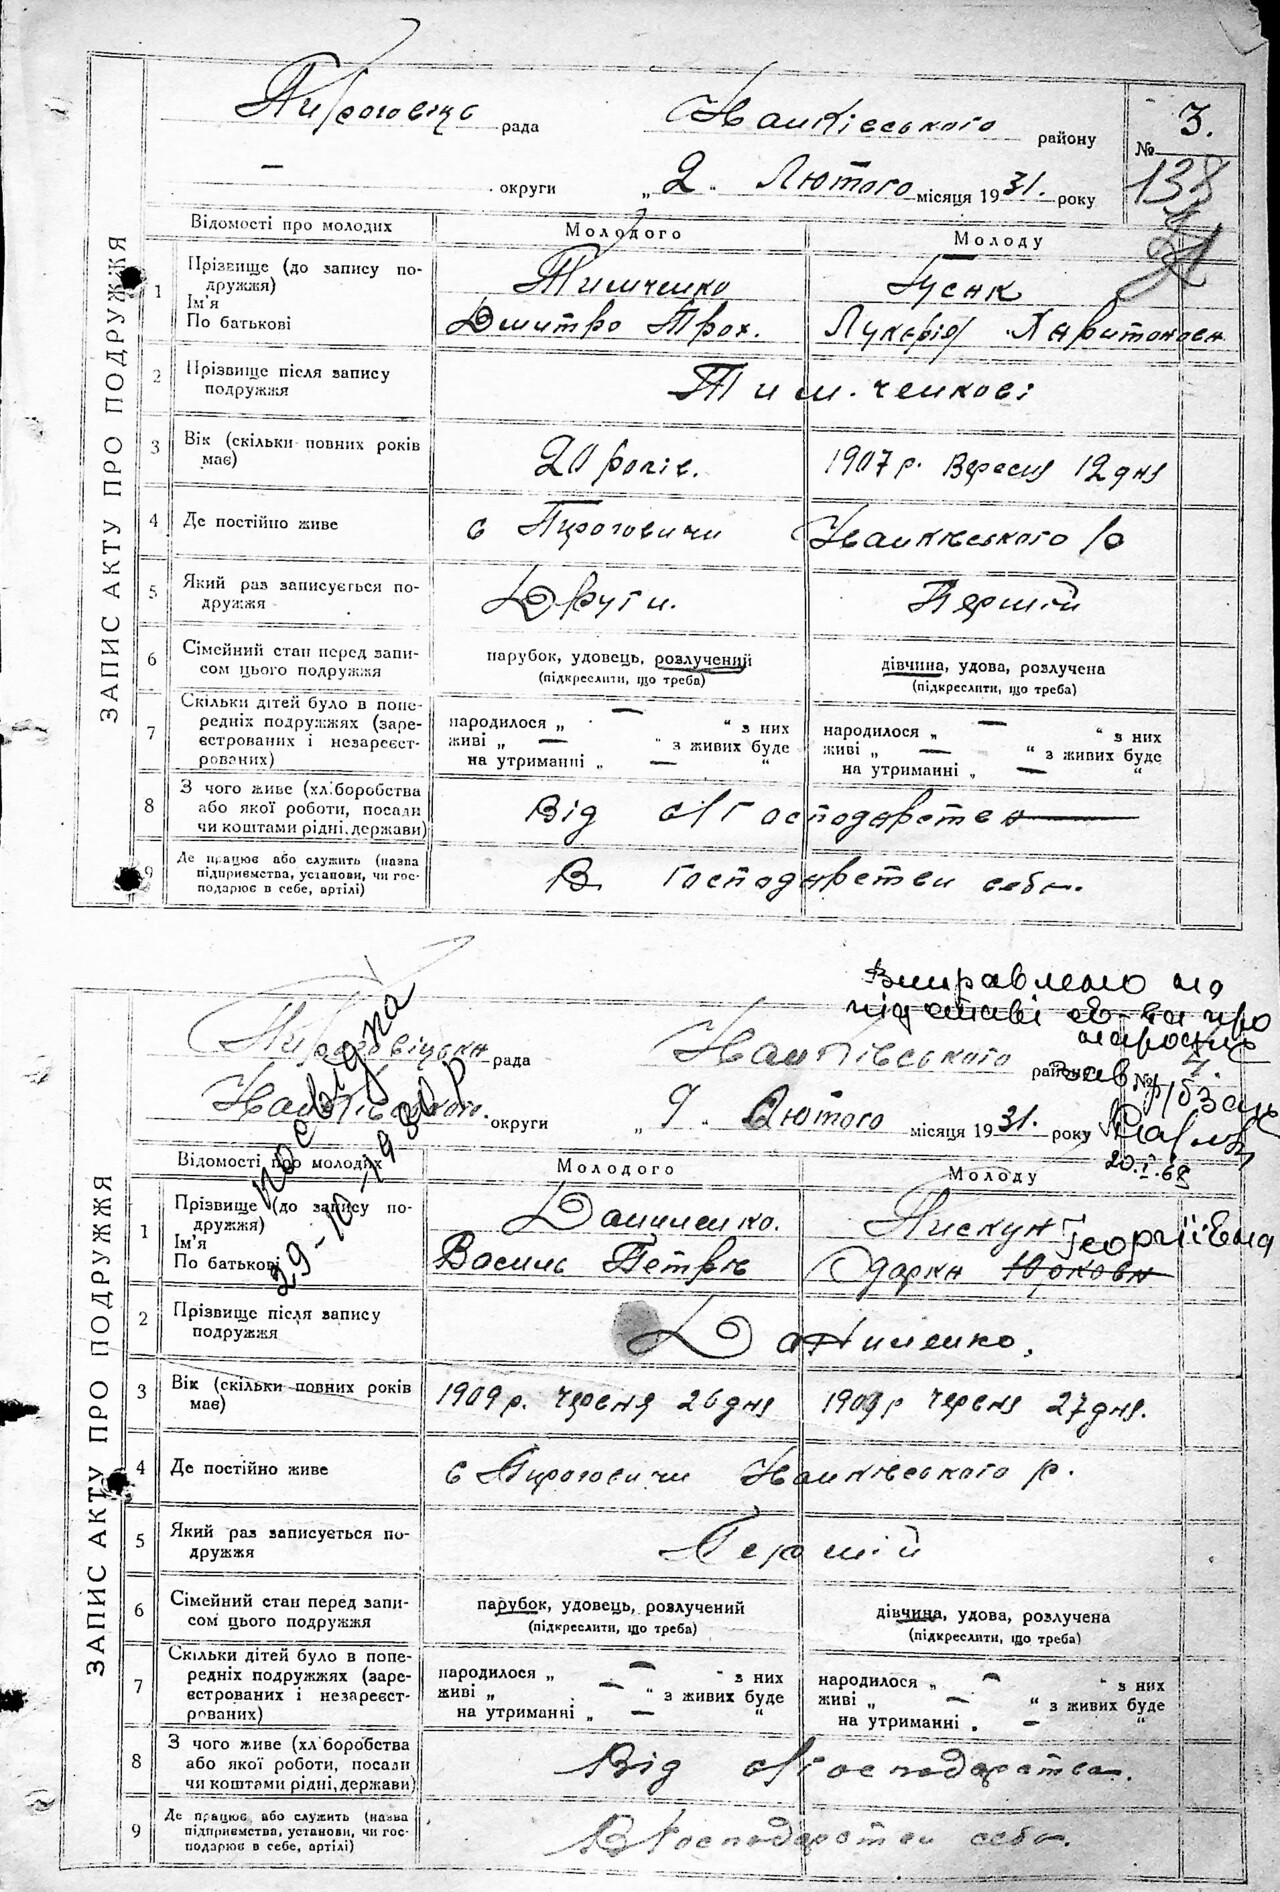 ЗАПИС АКТУ ПРО ПОДРУЖЖЯ
рада Іванківського району № 3.
138
— округи „ 2. Лютого місяця 1931. року
Відомості про молодих Молодого Молоду
1 Прізвище (до запису подружжя) Тимченко Гусак
Ім'я
По батькові Дмитро Трох. Лукєрія Харитоновн
2 Прізвище після запису
подружжя Тимченкові
3 Вік (скільки повних років
має) 20 років. 1907 р. Вересня 12 дня
4 Де постійно живе с Пироговичи Іванківського р
5 Який раз записується по-
дружжя Други. Перший
6 Сімейний стан перед запи- парубок, удовець, розлучений дівчина, удова, розлучена
сом цього подружжя (підкреслити, що треба) (підкреслити, що треба)
7 Скільки дітей було в попе-
редніх подружжях (заре- народилося „ — “ з них народилося „ — “ з них
єстрованих і незареєст- живі „ — “ з живих буде живі „ — “ з живих буде
рованих) на утриманні „ — “ на утриманні „ — “
8 З чого живе (хліборобства
або якої роботи, посади Від с/Господарства
чи коштами рідні, держави)
9 Де працює або служить (назва
підприємства, установи, чи гос- В Господарстви себе.
подарює в себе, артілі)
Виправлено на
підставі св-ва про
народж
ЗАПИС АКТУ ПРО ПОДРУЖЖЯ
рада Іванківського району № 7.
зав
Іванківського. округи „ 9. Лютого місяця 1931. року
20.I.68
посвідка
29-10-1980 р
Відомості про молодих Молодого Молоду
1 Прізвище (до запису по-
дружжя) Даниленко. Пискун Георгіївна
Ім'я
По батькові Василь Петрів Одарка Юрковн
2 Прізвище після запису
подружжя Даниленко.
3 Вік (скільки повних років
має) 1909 р. Червня 26 дня 1909 р Червня 27 дня.
4 Де постійно живе с Пироговичи Іванківського р.
5 Який раз записується по-
дружжя Перший
6 Сімейний стан перед запи- парубок, удовець, розлучений дівчина, удова, розлучена
сом цього подружжя (підкреслити, що треба) (підкреслити, що треба)
7 Скільки дітей було в попе-
редніх подружжях (заре- народилося „ — “ з них народилося „ — “ з них
єстрованих і незареєст- живі „ — “ з живих буде живі „ — “ з живих буде
рованих) на утриманні „ — “ на утриманні „ — “
8 З чого живе (хліборобства
або якої роботи, посади Від с/Господарства.
чи коштами рідні, держави)
9 Де працює або служить (назва
підприємства, установи, чи гос- В Господарстви себе.
подарює в себе, артілі)